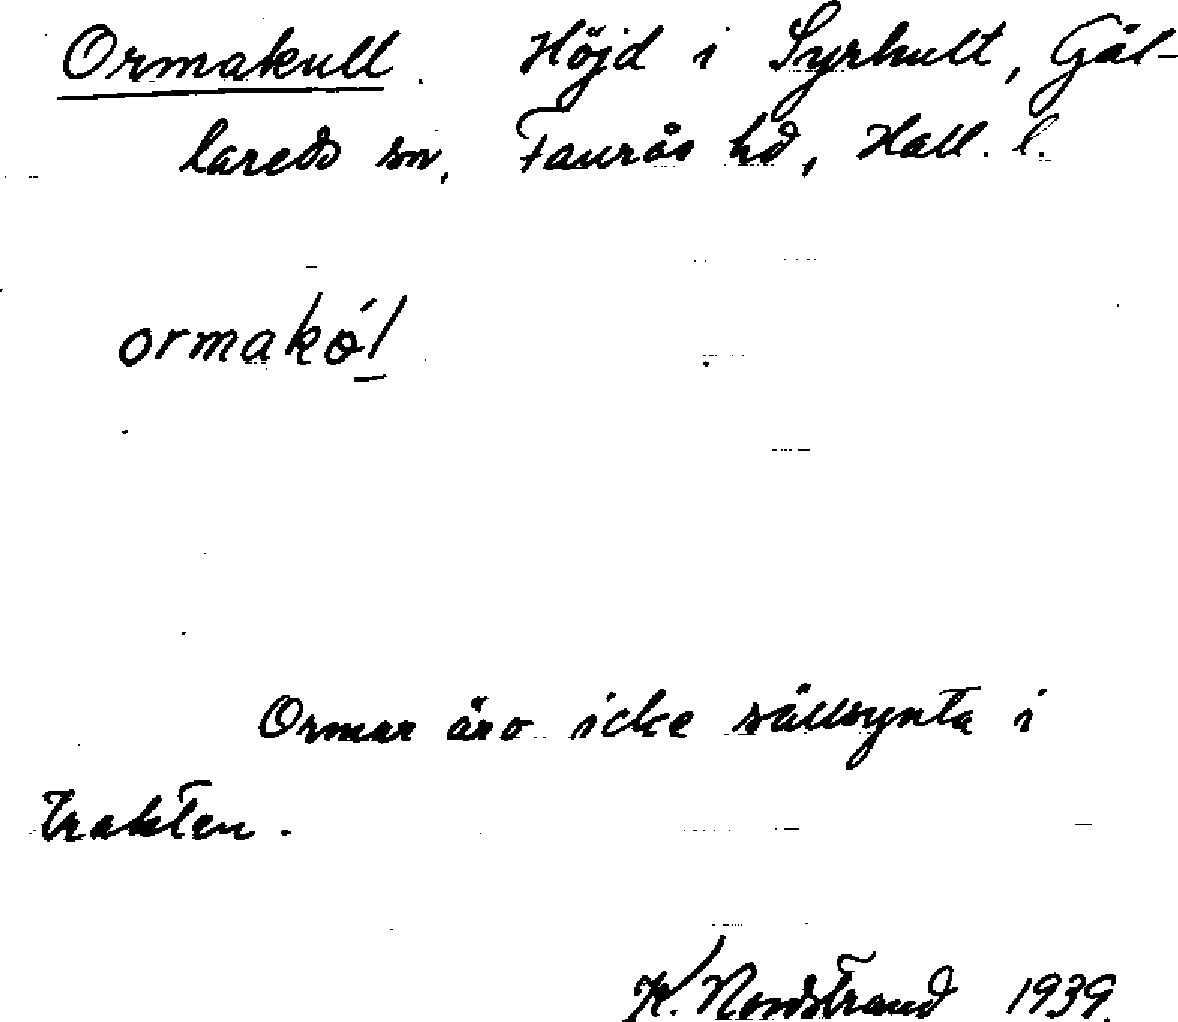 Ormakull. Höjd i Syrhult, Gäl-
lareds sn, Faurås hd, Hall. l.
ormakól
Ormar äro icke sällsynta i
trakten.
K. Nordstrand 1939.